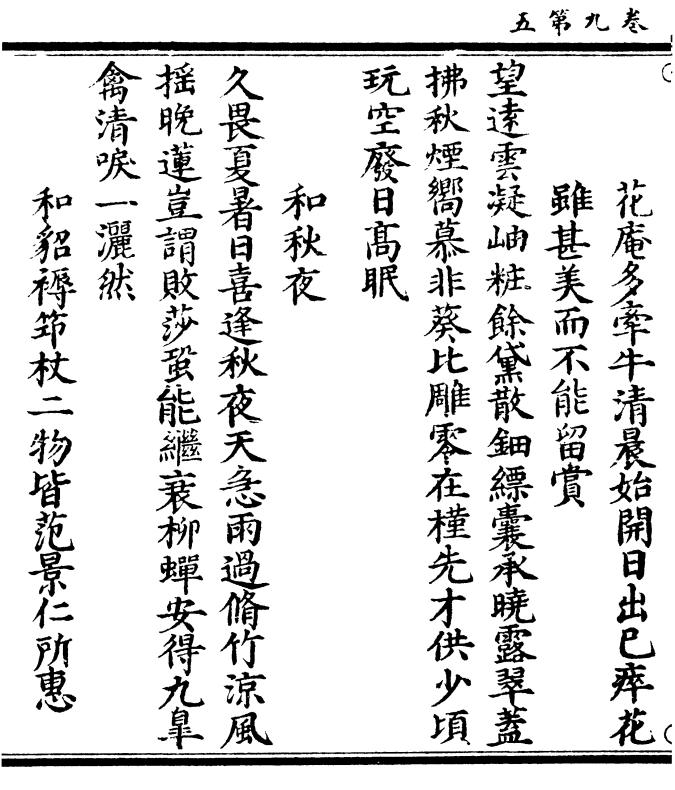 卷第九五
花庵多牽牛清晨始開日出已瘁花
雖甚美而不能留賞
望遠雲凝岫粧餘黛散鈿縹囊承曉露翠蓋
拂秋煙嚮慕非葵比雕零在槿先才供少頃
玩空廢日髙眠
和秋夜
久畏夏暑日喜逢秋夜天急雨過脩竹涼風
揺晚蓮豈謂敗莎蛩能繼衰柳蟬安得九臯
禽清唳一灑然
和貂褥筇杖二物皆范景仁所惠